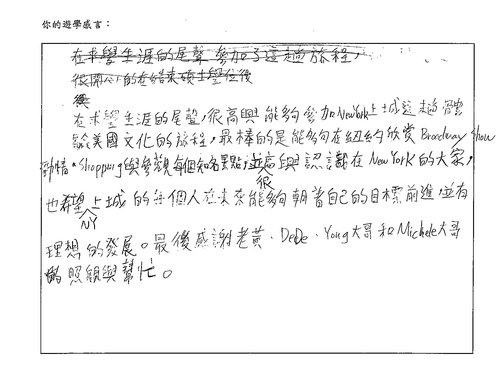 你的遊學感言：
在求學生涯的尾聲參加了這趟旅程，
很開心的在結束碩士學位後
在求學生涯的尾聲，很高興能夠參加New York上城這趟體
驗美國文化的旅程，最棒的是能夠在紐約欣賞 Broadway Show
、Shopping與參觀每個知名景點，並高興認識在New York的大家，
很
也希望上城的每個人在未來能夠朝著自己的目標前進並有
NY
理想的發展。最後感謝老黃、DeDe、Young大哥和Michele大哥
的照顧與幫忙。